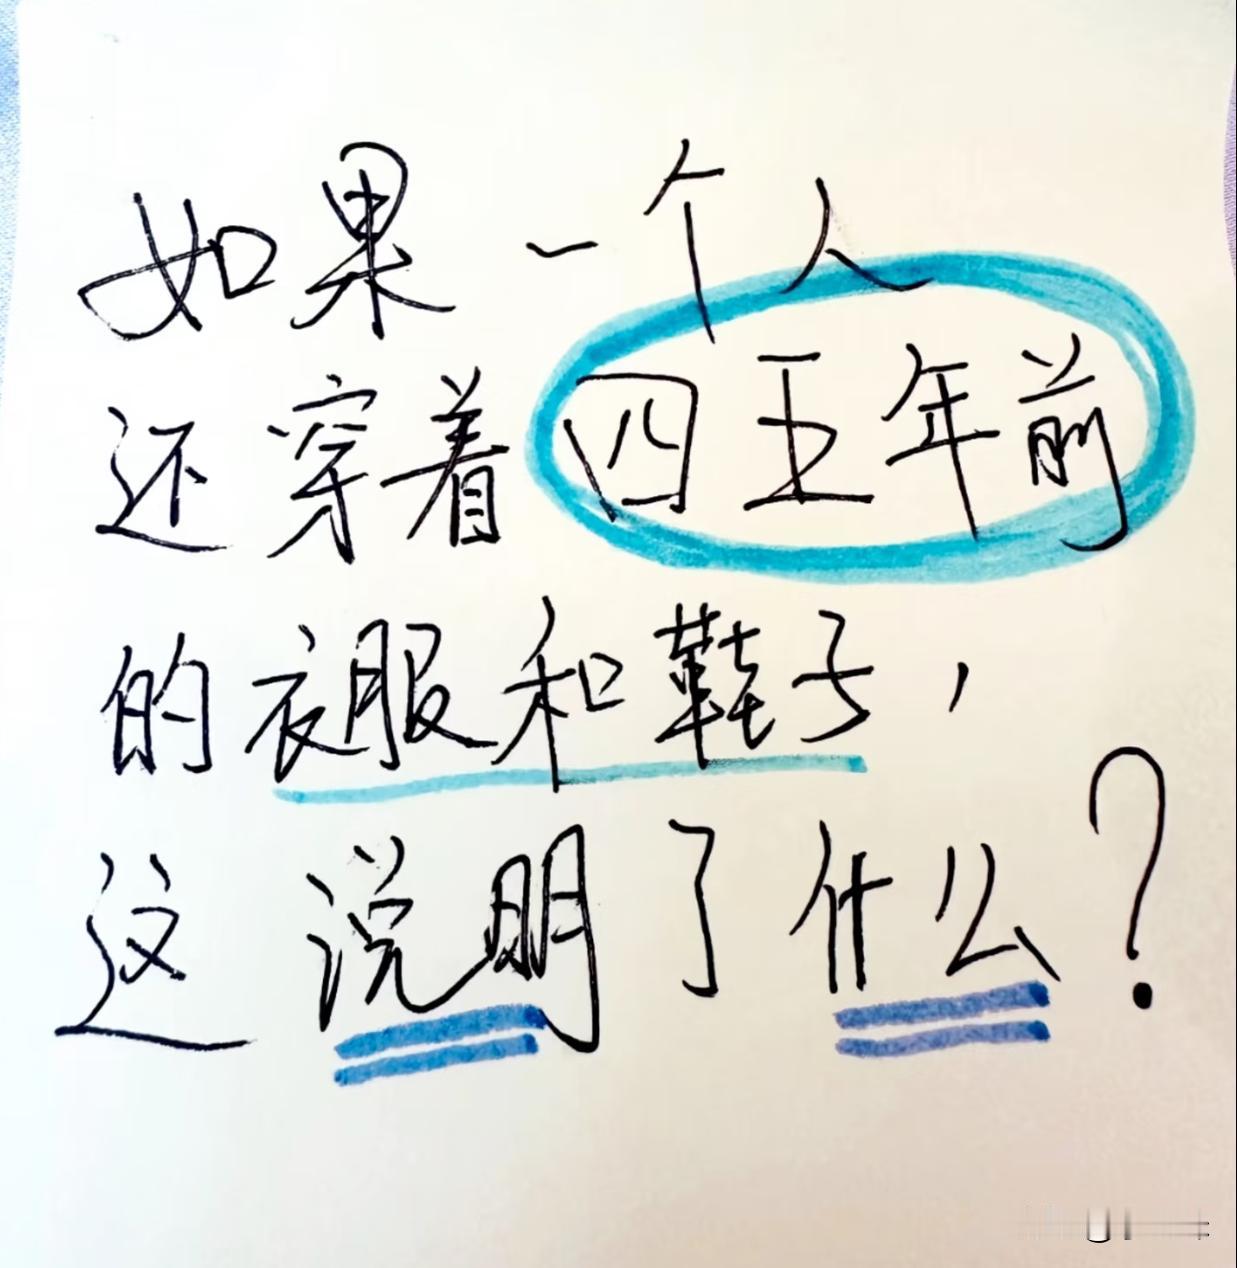 如果一个人
还穿着四五年前
的衣服和鞋子，
这说明了什么？